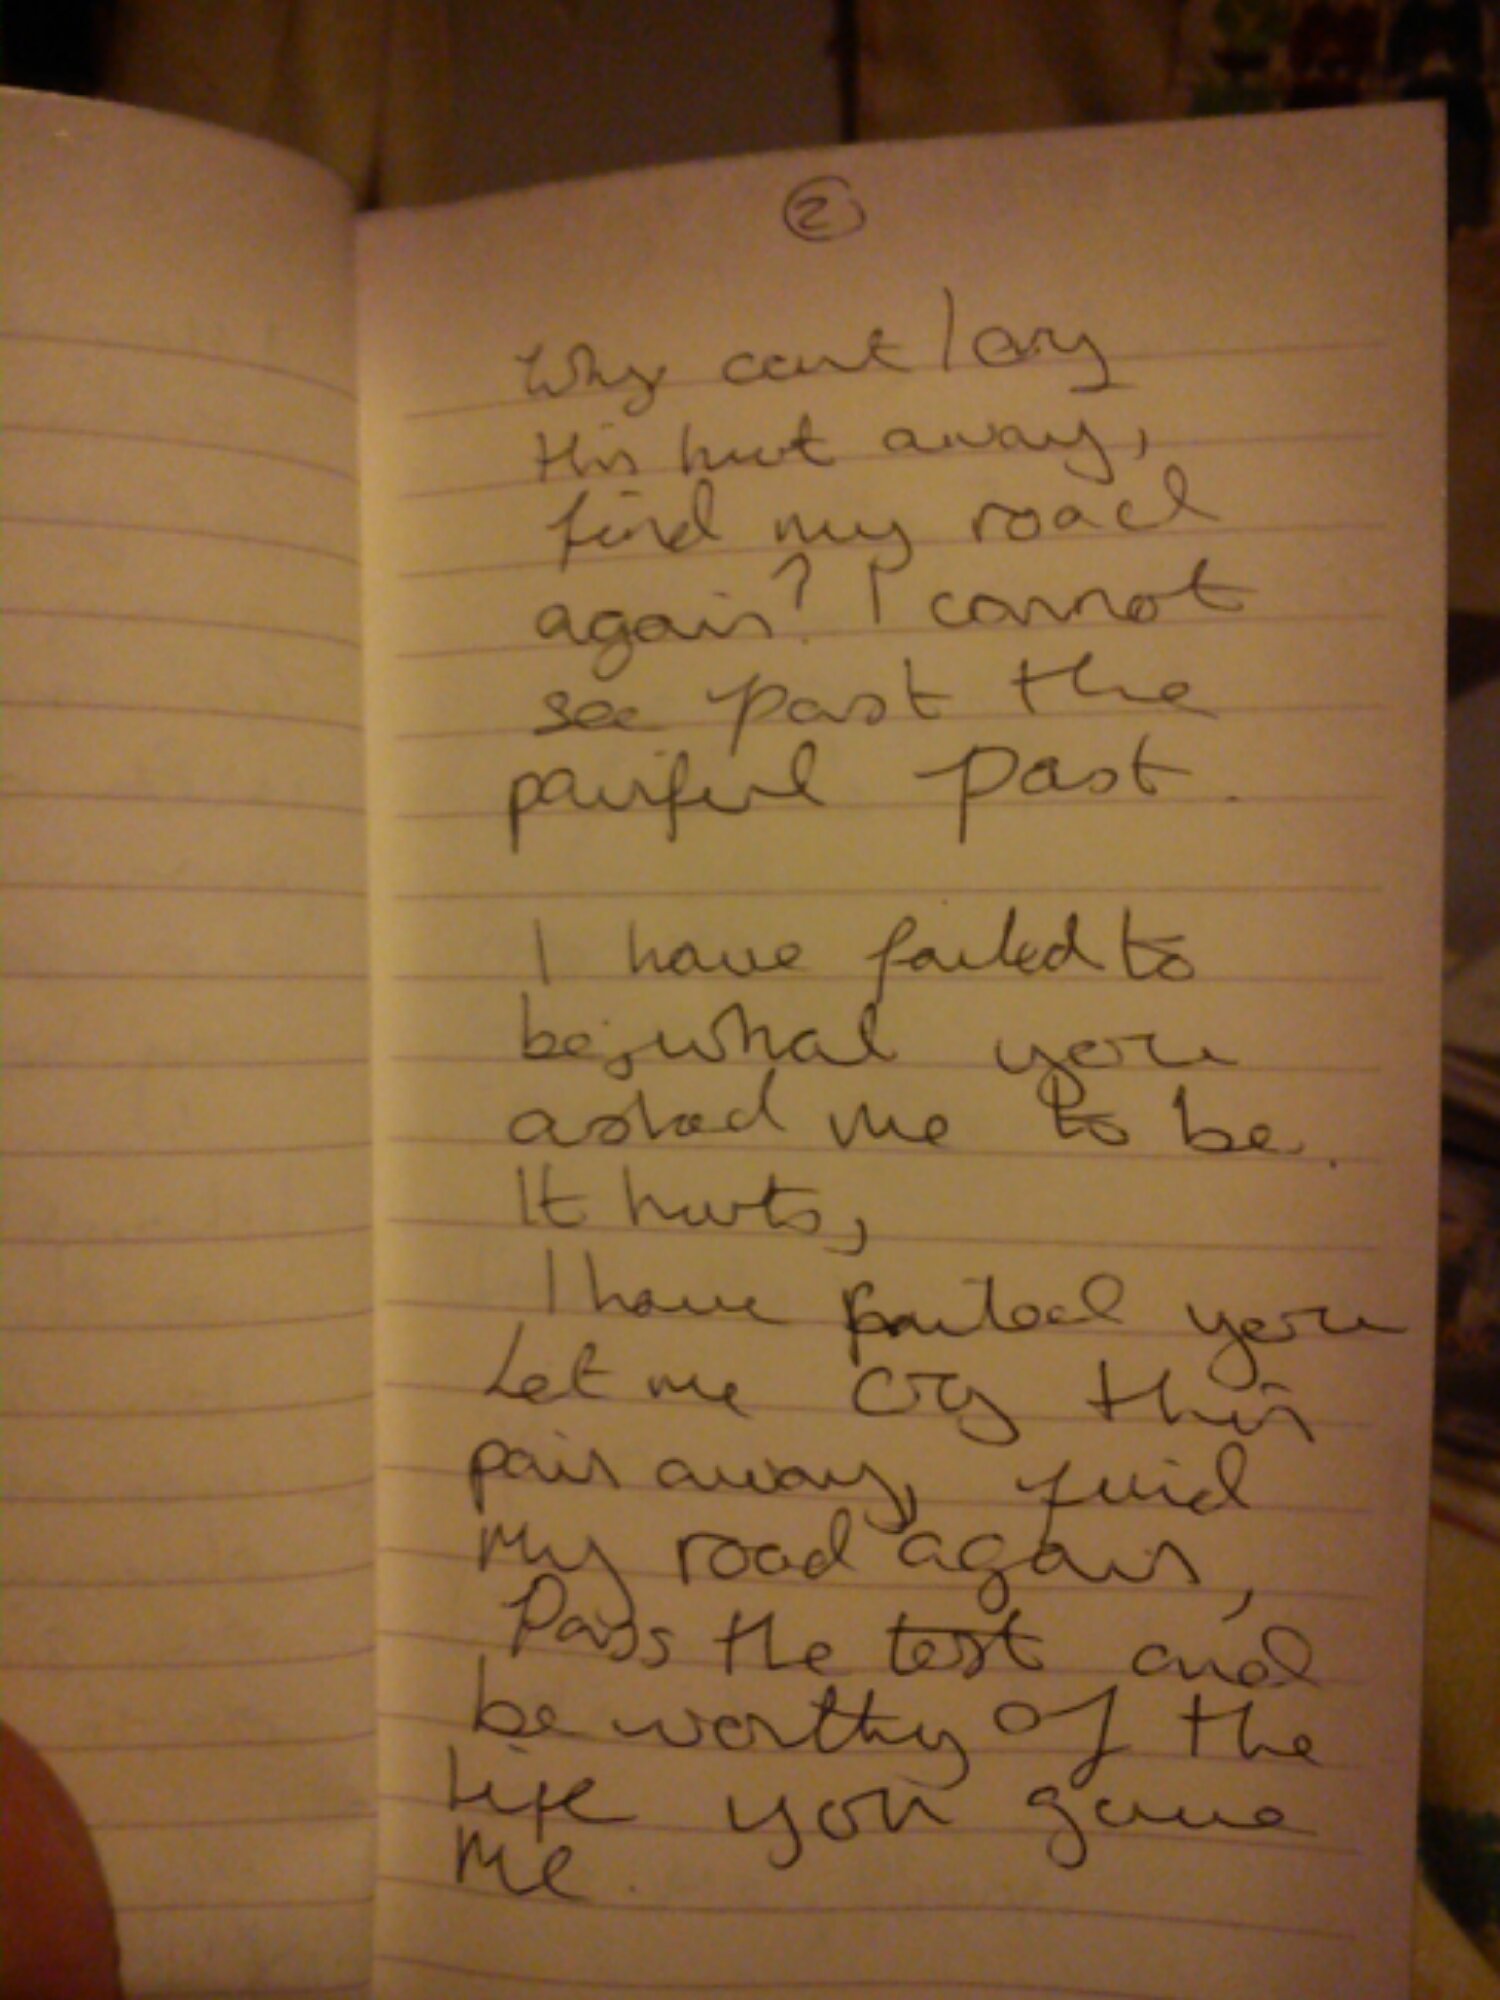 2
Why cant I cry
this hurt away,
find my road
again? I cannot
see past the
painful past.
I have failed to
be, what you
asked me to be.
It hurts,
I have failed you
Let me cry this
pain away, find
my road again,
Pass the test and
be worthy of the
life you gave
me.